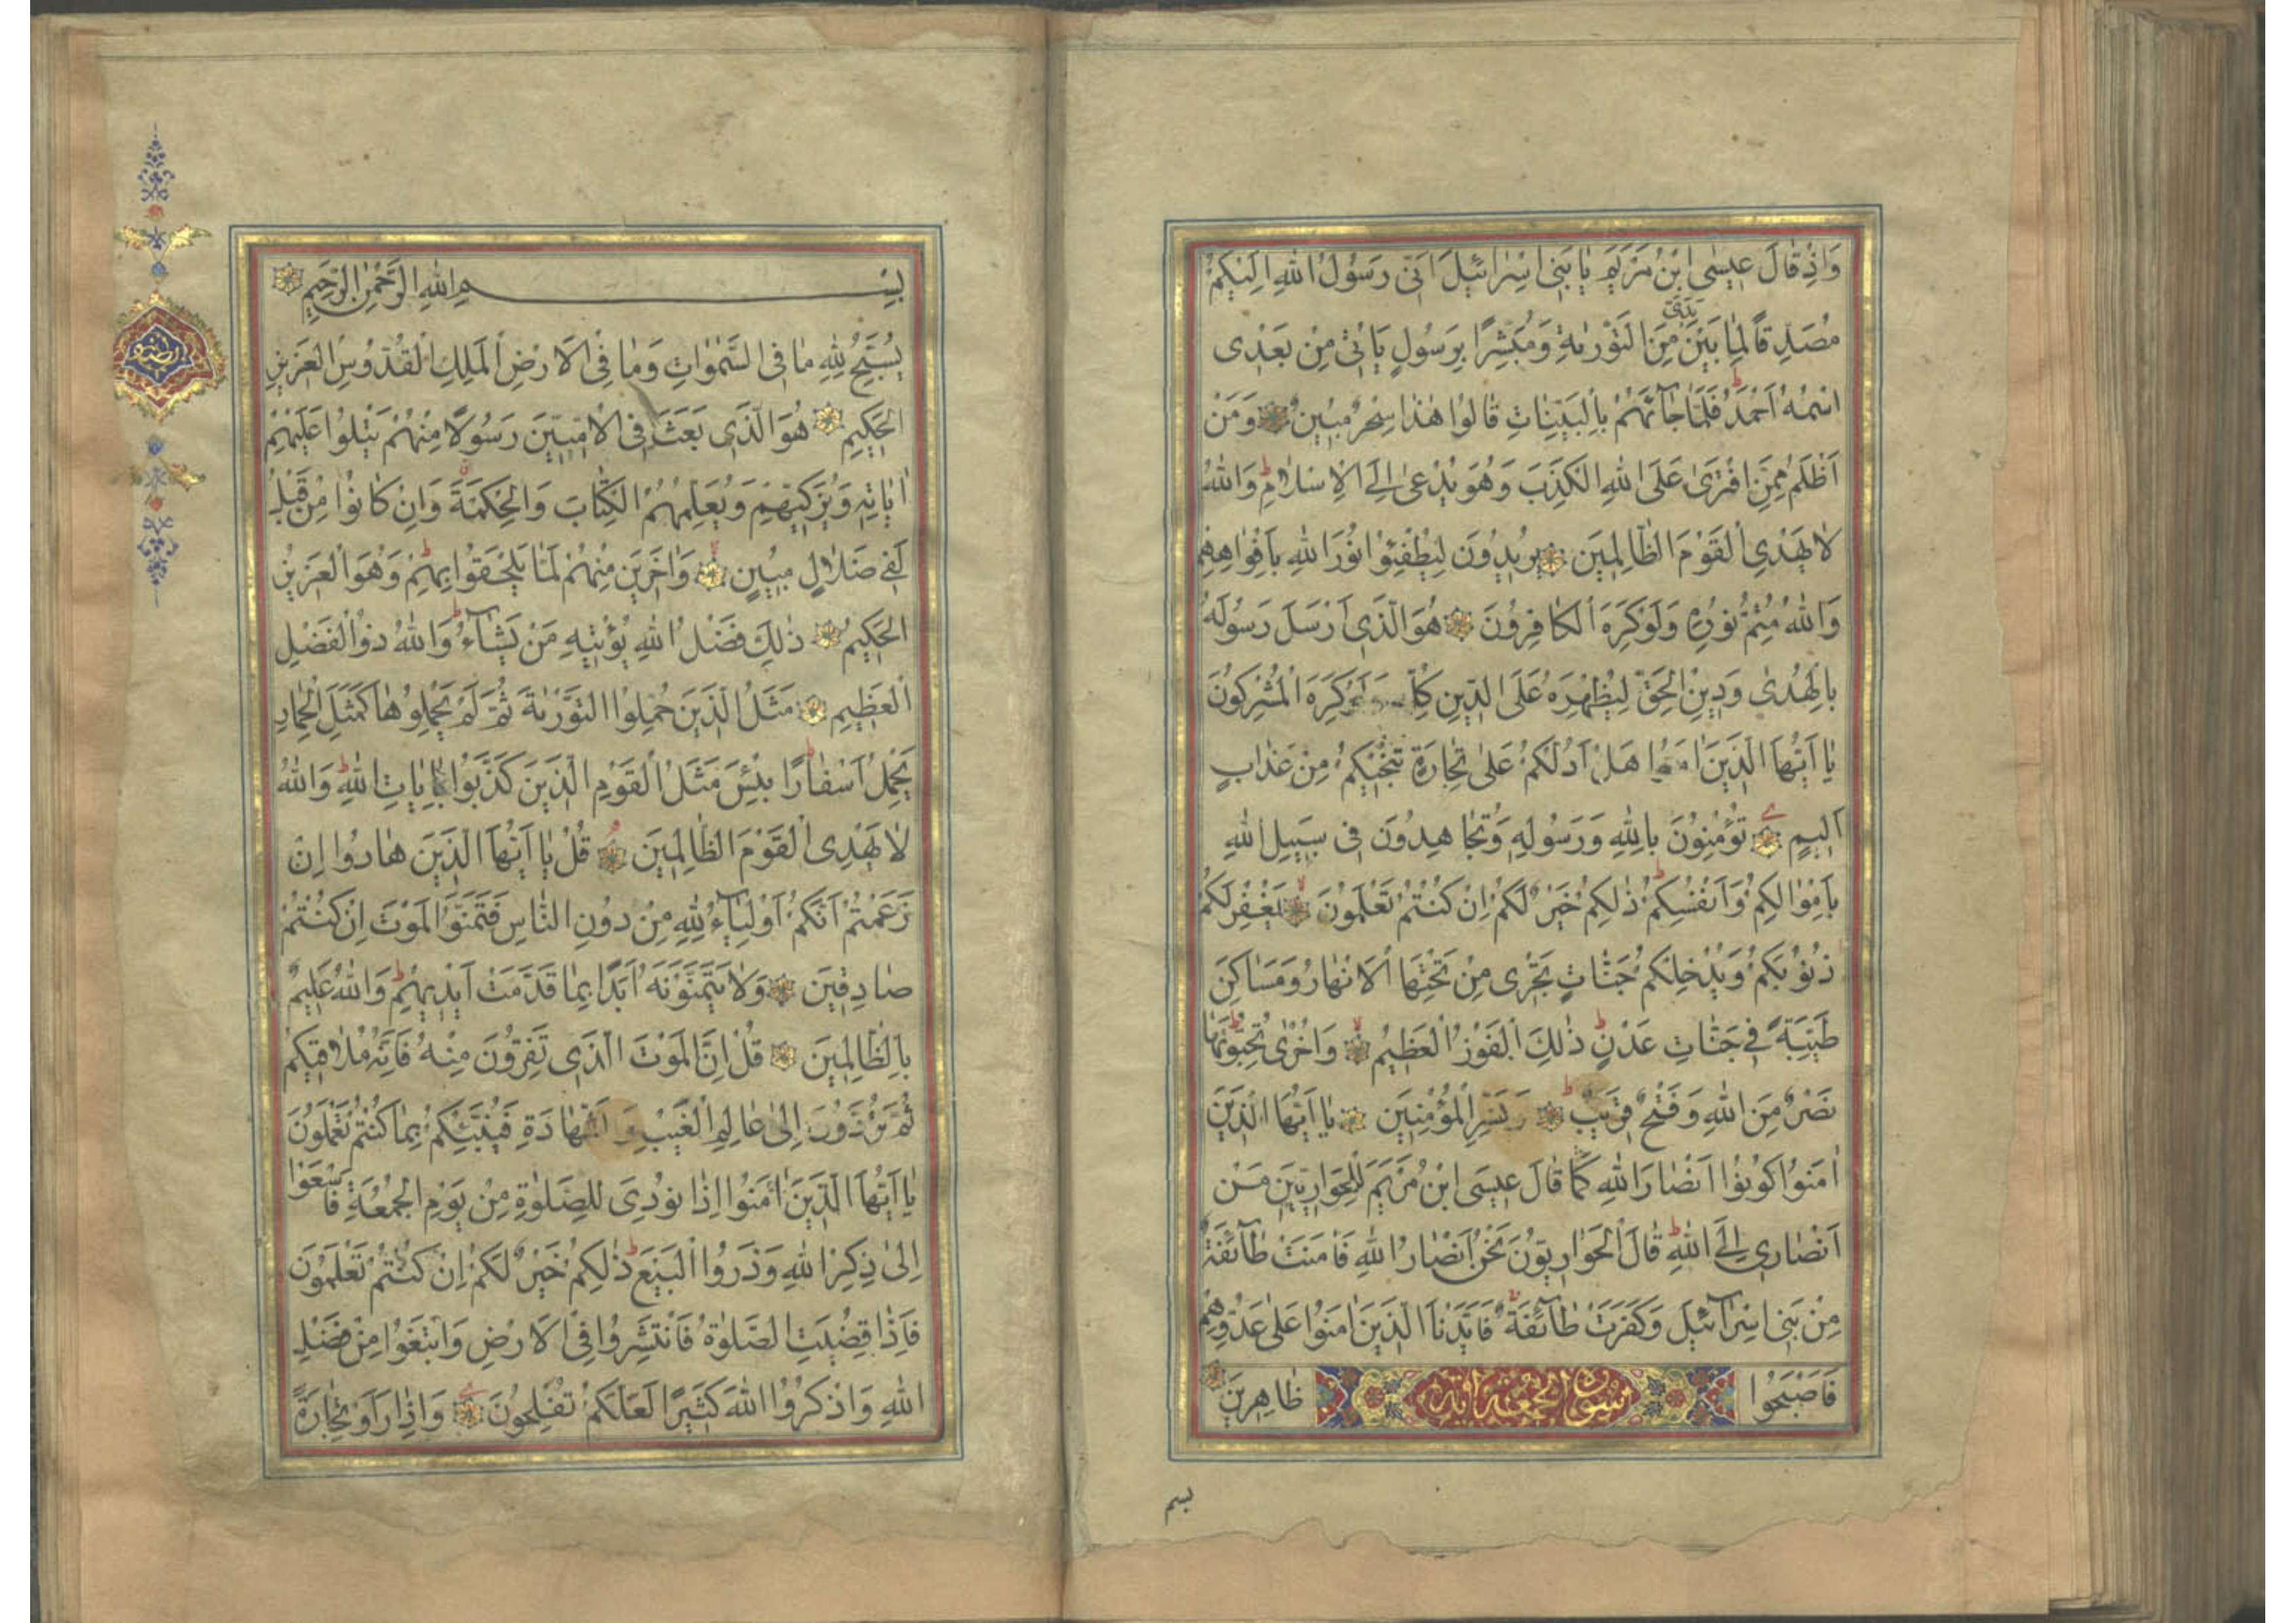 وَاِذْ قَالَ عِيسَى ابْنُ مَرْيَمَ يَا بَنِي اِسْرَائِيلَ اِنِّي رَسُولُ اللهِ اِلَيْكُمْ
مُصَدِّقًا لِمَا بَيْنَ يَدَيَّ مِنَ التَّوْرٰيةِ وَمُبَشِّرًا بِرَسُولٍ يَاْتِي مِنْ بَعْدِي
اسْمُهُ اَحْمَدُ فَلَمَّا جَآءَهُمْ بِالْبَيِّنَاتِ قَالُوا هٰذَا سِحْرٌ مُبِينٌ وَمَنْ
اَظْلَمُ مِمَّنِ افْتَرٰى عَلَى اللهِ الْكَذِبَ وَهُوَ يُدْعٰى اِلَى الْاِسْلَامِ وَاللهُ
لَا يَهْدِي الْقَوْمَ الظَّالِمِينَ يُرِيدُونَ لِيُطْفِئُوا نُورَ اللهِ بِاَفْوَاهِهِمْ
وَاللهُ مُتِمُّ نُورِهِ وَلَوْ كَرِهَ الْكَافِرُونَ هُوَ الَّذِي اَرْسَلَ رَسُولَهُ
بِالْهُدٰى وَدِينِ الْحَقِّ لِيُظْهِرَهُ عَلَى الدِّينِ كُلِّهِ وَلَوْ كَرِهَ الْمُشْرِكُونَ
يَا اَيُّهَا الَّذِينَ اٰمَنُوا هَلْ اَدُلُّكُمْ عَلٰى تِجَارَةٍ تُنْجِيكُمْ مِنْ عَذَابٍ
اَلِيمٍ تُؤْمِنُونَ بِاللهِ وَرَسُولِهِ وَتُجَاهِدُونَ فِي سَبِيلِ اللهِ
بِاَمْوَالِكُمْ وَاَنْفُسِكُمْ ذٰلِكُمْ خَيْرٌ لَكُمْ اِنْ كُنْتُمْ تَعْلَمُونَ يَغْفِرْ لَكُمْ
ذُنُوبَكُمْ وَيُدْخِلْكُمْ جَنَّاتٍ تَجْرِي مِنْ تَحْتِهَا الْاَنْهَارُ وَمَسَاكِنَ
طَيِّبَةً فِي جَنَّاتِ عَدْنٍ ذٰلِكَ الْفَوْزُ الْعَظِيمُ وَاُخْرٰى تُحِبُّونَهَا
نَصْرٌ مِنَ اللهِ وَفَتْحٌ قَرِيبٌ وَبَشِّرِ الْمُؤْمِنِينَ يَا اَيُّهَا الَّذِينَ
اٰمَنُوا كُونُوا اَنْصَارَ اللهِ كَمَا قَالَ عِيسَى ابْنُ مَرْيَمَ لِلْحَوَارِيِّينَ مَنْ
اَنْصَارِي اِلَى اللهِ قَالَ الْحَوَارِيُّونَ نَحْنُ اَنْصَارُ اللهِ فَاٰمَنَتْ طَآئِفَةٌ
مِنْ بَنِي اِسْرَآئِيلَ وَكَفَرَتْ طَآئِفَةٌ فَاَيَّدْنَا الَّذِينَ اٰمَنُوا عَلٰى عَدُوِّهِمْ
فَاَصْبَحُوا سورة الجمعة ظَاهِرِينَ
بسم
بِسْمِ اللهِ الرَّحْمٰنِ الرَّحِيمِ
يُسَبِّحُ لِلّٰهِ مَا فِي السَّمٰوَاتِ وَمَا فِي الْاَرْضِ الْمَلِكِ الْقُدُّوسِ الْعَزِيزِ
الْحَكِيمِ هُوَ الَّذِي بَعَثَ فِي الْاُمِّيِّينَ رَسُولًا مِنْهُمْ يَتْلُوا عَلَيْهِمْ
اٰيَاتِهِ وَيُزَكِّيهِمْ وَيُعَلِّمُهُمُ الْكِتَابَ وَالْحِكْمَةَ وَاِنْ كَانُوا مِنْ قَبْلُ
لَفِي ضَلَالٍ مُبِينٍ وَاٰخَرِينَ مِنْهُمْ لَمَّا يَلْحَقُوا بِهِمْ وَهُوَ الْعَزِيزُ
الْحَكِيمُ ذٰلِكَ فَضْلُ اللهِ يُؤْتِيهِ مَنْ يَشَآءُ وَاللهُ ذُو الْفَضْلِ
الْعَظِيمِ مَثَلُ الَّذِينَ حُمِّلُوا التَّوْرٰيةَ ثُمَّ لَمْ يَحْمِلُوهَا كَمَثَلِ الْحِمَارِ
يَحْمِلُ اَسْفَارًا بِئْسَ مَثَلُ الْقَوْمِ الَّذِينَ كَذَّبُوا بِاٰيَاتِ اللهِ وَاللهُ
لَا يَهْدِي الْقَوْمَ الظَّالِمِينَ قُلْ يَا اَيُّهَا الَّذِينَ هَادُوا اِنْ
زَعَمْتُمْ اَنَّكُمْ اَوْلِيَآءُ لِلّٰهِ مِنْ دُونِ النَّاسِ فَتَمَنَّوُا الْمَوْتَ اِنْ كُنْتُمْ
صَادِقِينَ وَلَا يَتَمَنَّوْنَهُ اَبَدًا بِمَا قَدَّمَتْ اَيْدِيهِمْ وَاللهُ عَلِيمٌ
بِالظَّالِمِينَ قُلْ اِنَّ الْمَوْتَ الَّذِي تَفِرُّونَ مِنْهُ فَاِنَّهُ مُلَاقِيكُمْ
ثُمَّ تُرَدُّونَ اِلٰى عَالِمِ الْغَيْبِ وَالشَّهَادَةِ فَيُنَبِّئُكُمْ بِمَا كُنْتُمْ تَعْمَلُونَ
يَا اَيُّهَا الَّذِينَ اٰمَنُوا اِذَا نُودِيَ لِلصَّلٰوةِ مِنْ يَوْمِ الْجُمُعَةِ فَاسْعَوْا
اِلٰى ذِكْرِ اللهِ وَذَرُوا الْبَيْعَ ذٰلِكُمْ خَيْرٌ لَكُمْ اِنْ كُنْتُمْ تَعْلَمُونَ
فَاِذَا قُضِيَتِ الصَّلٰوةُ فَانْتَشِرُوا فِي الْاَرْضِ وَابْتَغُوا مِنْ فَضْلِ
اللهِ وَاذْكُرُوا اللهَ كَثِيرًا لَعَلَّكُمْ تُفْلِحُونَ وَاِذَا رَاَوْ تِجَارَةً